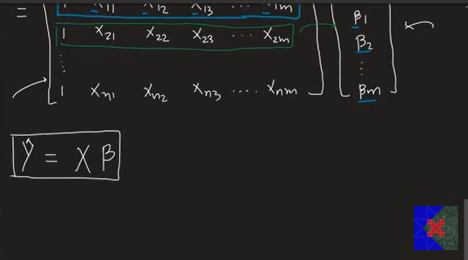 = 1 x₁₁ x₁₂ x₁₃ ... x₁ₘ β₁
1 x₂₁ x₂₂ x₂₃ ... x₂ₘ β₂
⋮ ⋮
1 xₙ₁ xₙ₂ xₙ₃ .... xₙₘ βₘ
Ŷ = X β